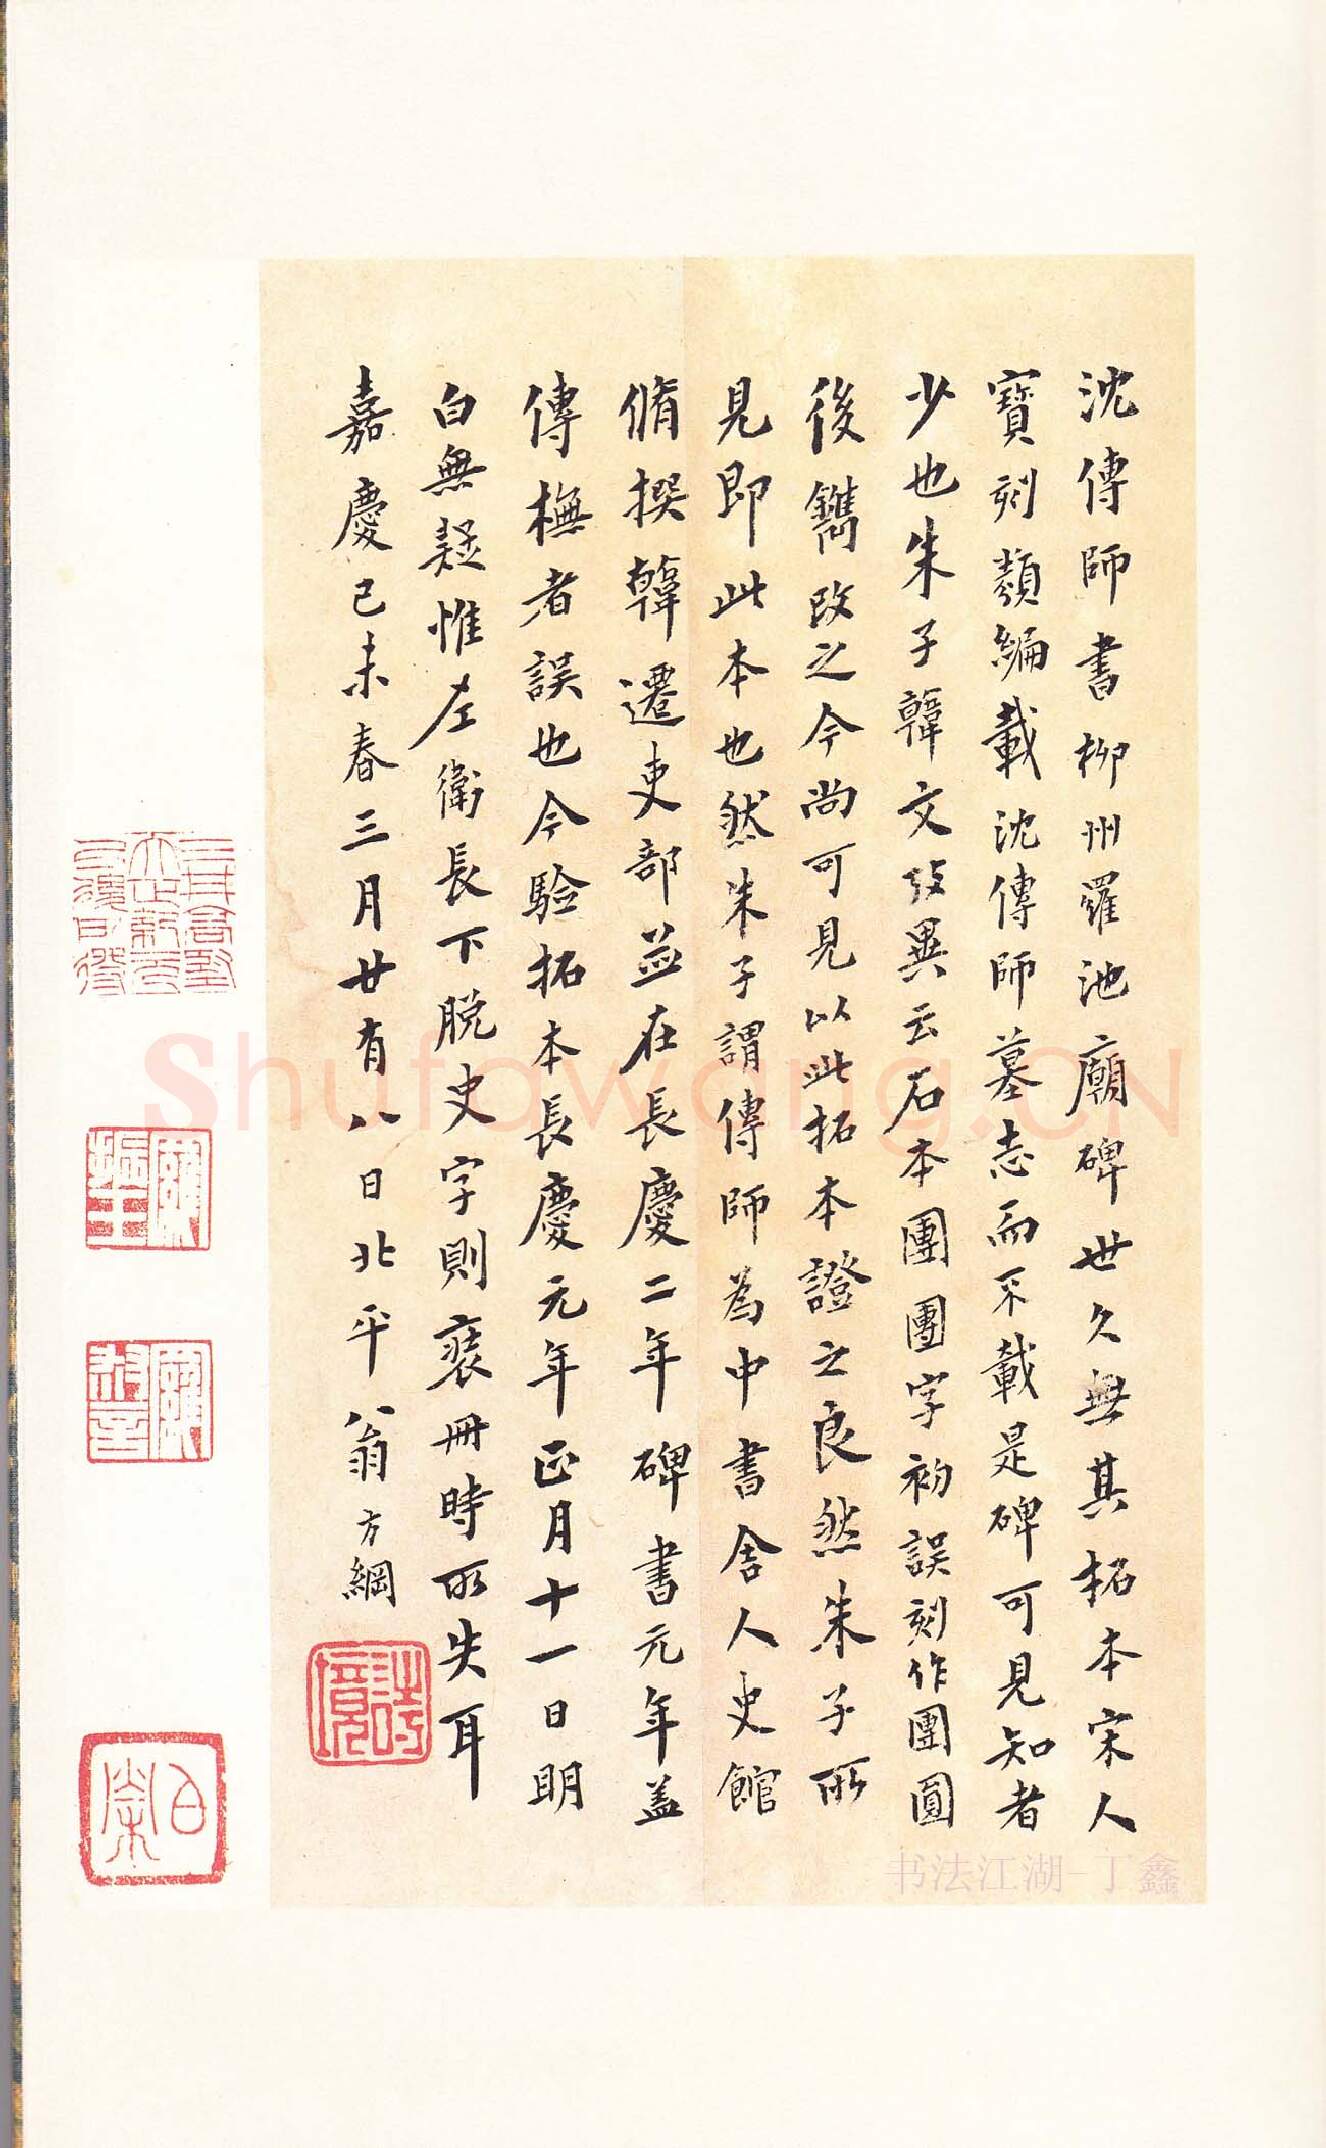 沈傳師書柳州羅池廟碑世久無其拓本宋人
寶刻類編載沈傳師墓志而不載是碑可見知者
少也朱子韓文攷異云石本團團字初誤刻作團圓
後鐫改之今尚可見以此拓本證之良然朱子所
見即此本也然朱子謂傳師為中書舍人史館
脩撰韓遷吏部並在長慶二年碑書元年蓋
傳橅者誤也今驗拓本長慶元年正月十一日明
白無疑惟左衛長下脫史字則裱冊時所失耳
嘉慶己未春三月廿有八日北平翁方綱
詩境
羅振玉
Shufawang.CN
书法江湖-丁鑫